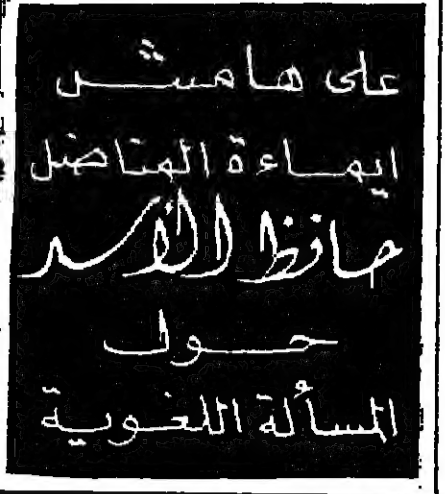 على هامش
ايماءة المناضل
حافظ الأسد
حول
المسألة اللغوية